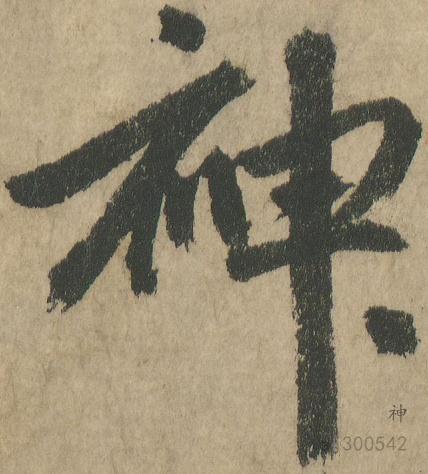 神
神
300542